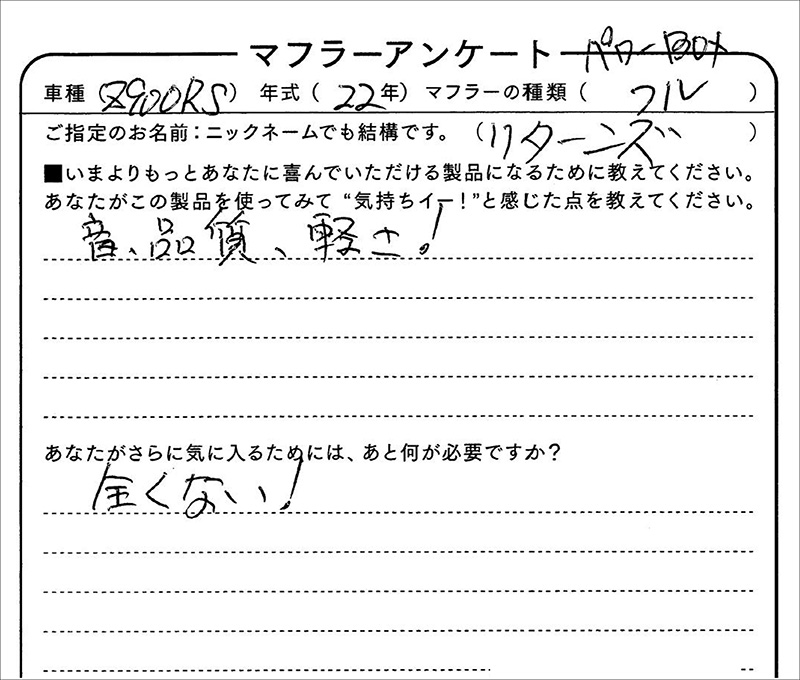 マフラーアンケート パワーBOX
車種（Z900RS） 年式（22年）マフラーの種類（フル）
ご指定のお名前：ニックネームでも結構です。（リターンズ）
■いまよりもっとあなたに喜んでいただける製品になるために教えてください。
あなたがこの製品を使ってみて“気持ちイー！”と感じた点を教えてください。
音、品質、軽さ！
あなたがさらに気に入るためには、あと何が必要ですか？
全くない！